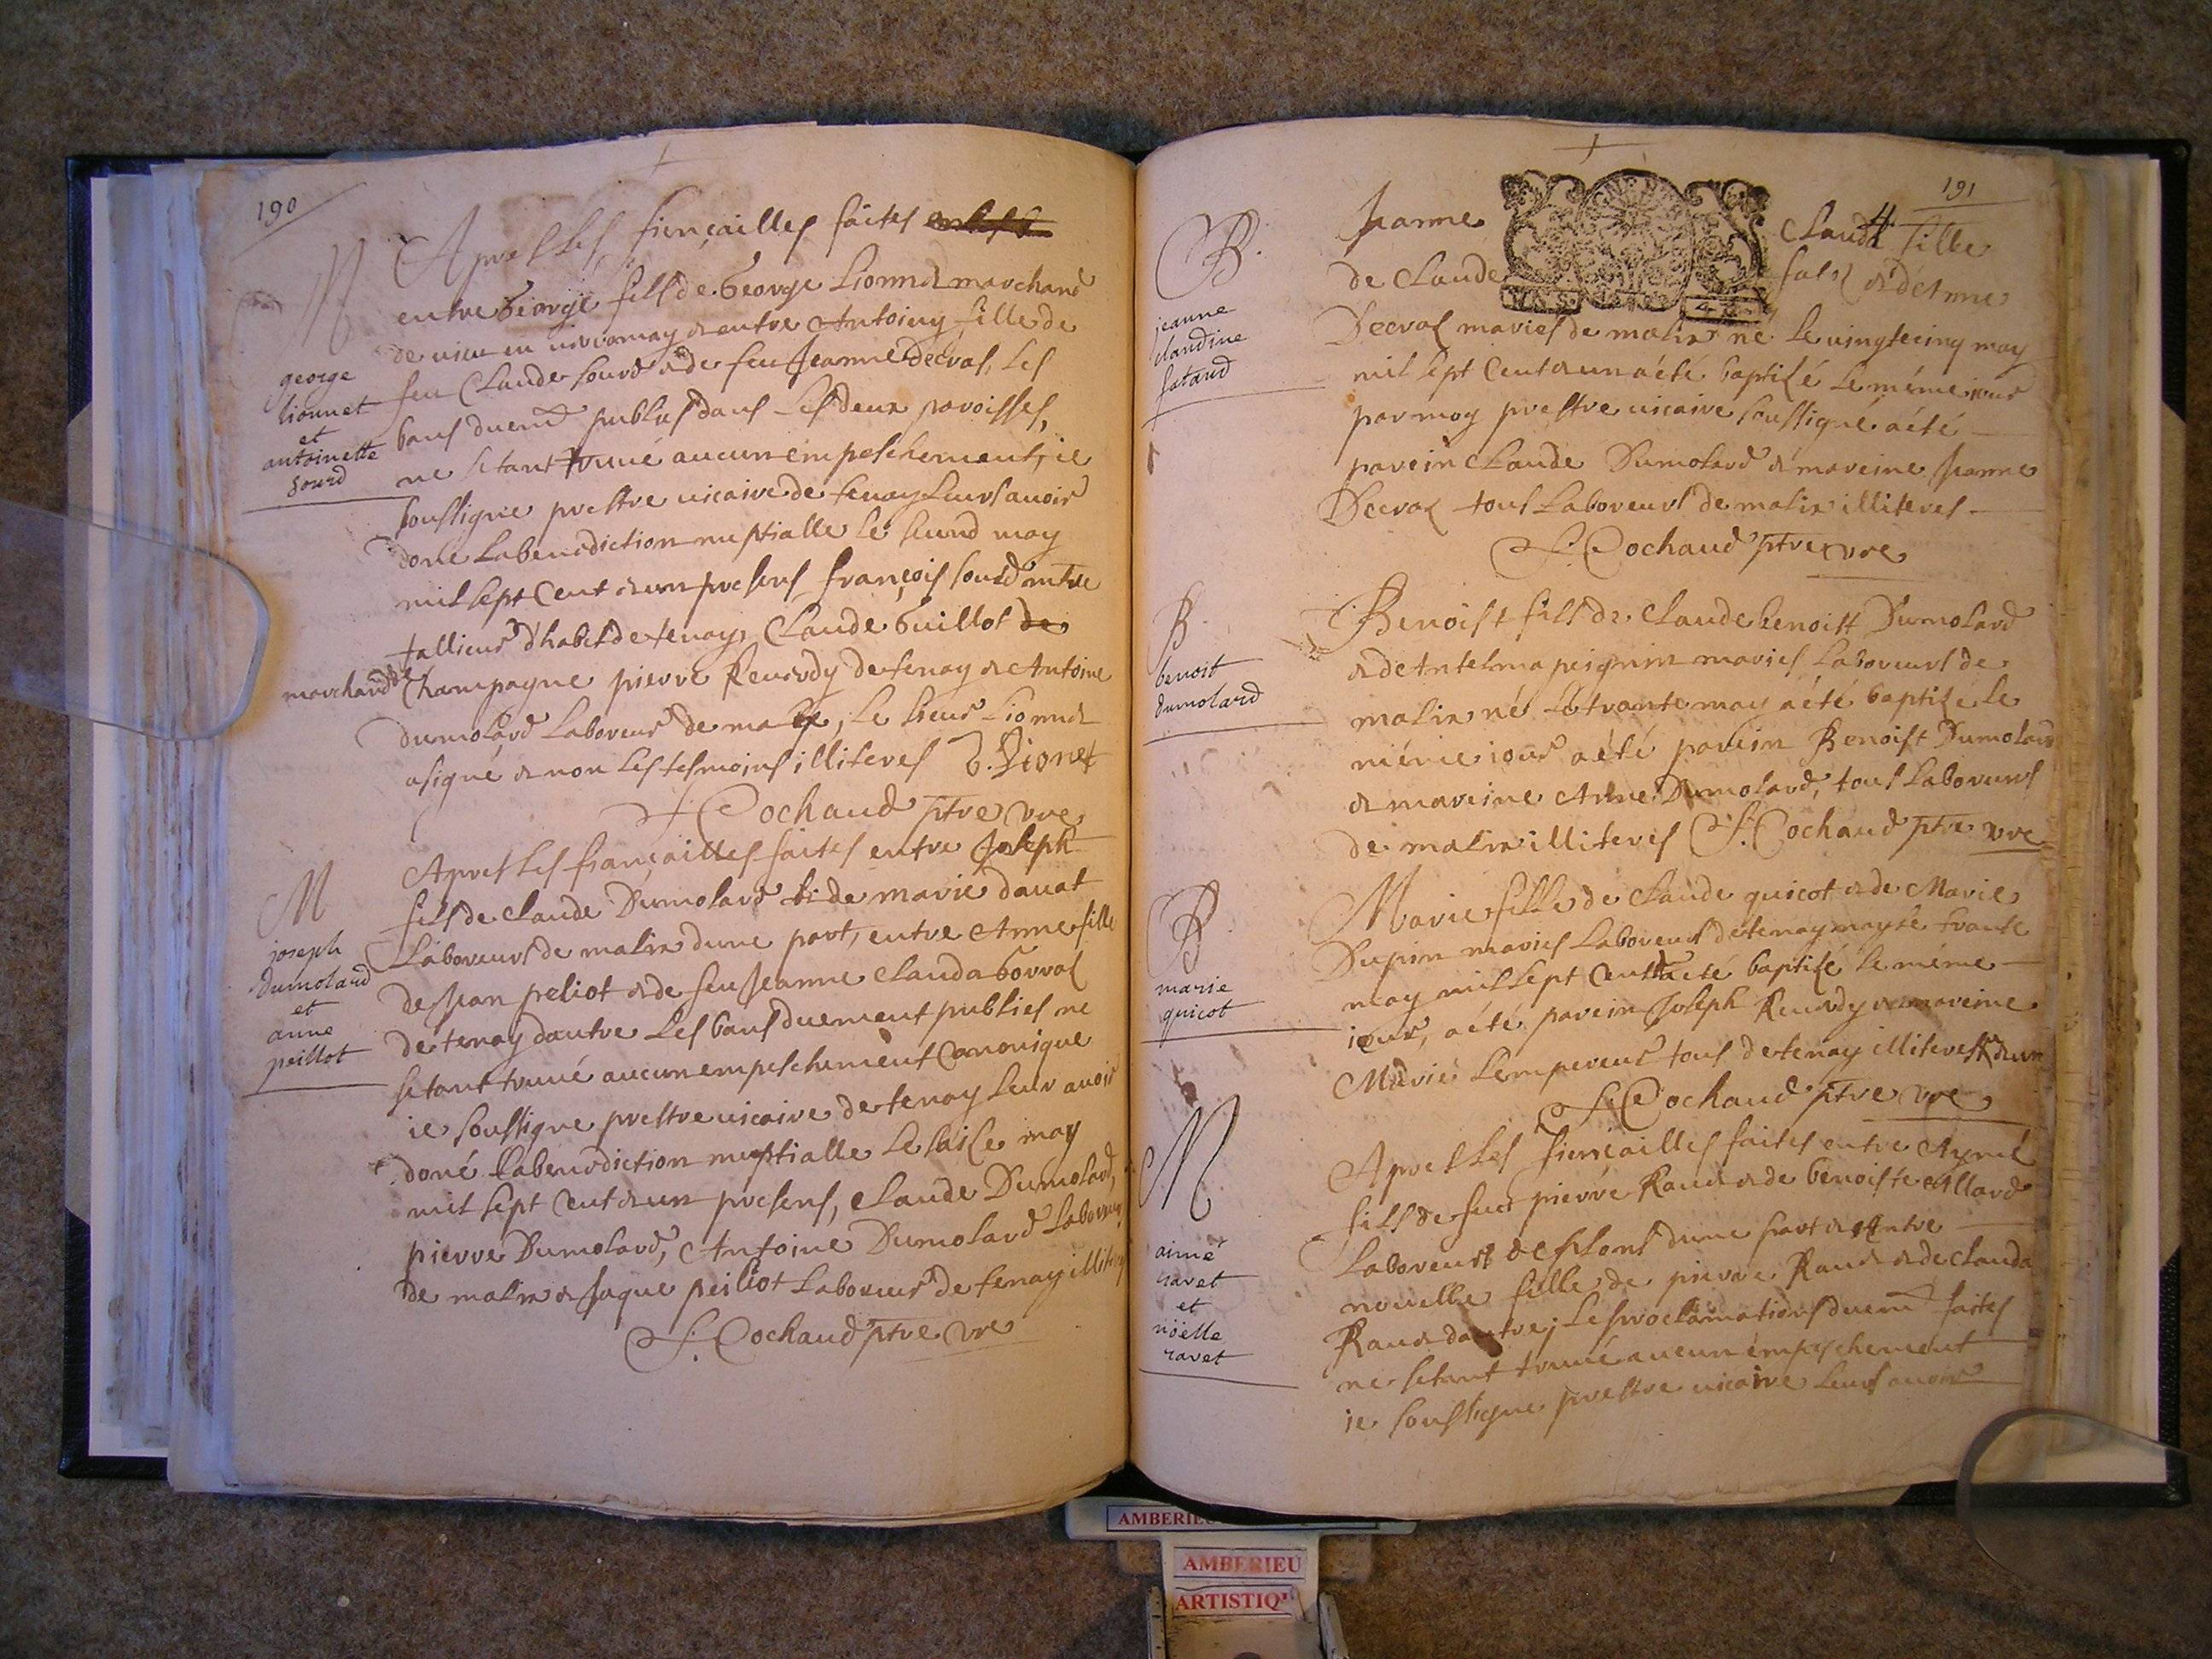 190
M
george
lionnet
et
antoinette
sourd
Apres les fiencailles faites
entre George fils de George Lionnet marchand
de vieu en veromay et entre Antoine fille de
feu Claude sourd et de feu Jeanne Decras, les
bans duemt publies dans les deux paroisses,
ne setant truué aucun empeschement, ie
soussigne prestre uicaire de tenay leurs auoir
doné la benediction nuptialle le may
mil sept cent et un presens françois sourd mtre
tallieur d'habit de tenay, Claude Guillot de
marchand de Champagne pierre Reuerdy de tenay et Antoine
dumolard laboreur de malix, le sieur Lionnet
a signé et non les tesmoins illiteres G. Lionet
Cochaud ptre vre
M
joseph
dumolard
et
anne
peillot
Apres les fiançailles faites entre Joseph
fils de Claude Dumolard et de marie dauat
laboreurs de malix dune part, entre Anne fille
de Jean peliot et de feu Jeanne Clauda borral
de tenay dautre les bans duement publies ne
setant truué aucun empeschement Canonique
ie soussigne prestre uicaire de tenay leur auoir
doné la benediction nuptialle le saise may
mil sept cent et un presens, Claude Dumolard,
pierre Dumolard, Antoine Dumolard laboreurs
de malix et Jaque peiliot laboreur de tenay illiteres
Cochaud ptre vre
191
B.
jeanne
claudine
fataud
Jeanne Claudt fille
de Claude fatod et d'Anne
Decras maries de malix né le uingtecinq may
mil sept cent et un a été baptisé le même iour
par moy prestre uicaire soussigné a été
parein Claude Dumolard et mareine Jeanne
Decras tous laboreurs de malix illiteres
Cochaud ptre vre
B
benoit
dumolard
Benoist fils de Claude benoitt Dumolard
et de Antelma peignin maries laboreurs de
malix né le trante may a été baptisé le
même iour a été parein Benoist Dumolard
et mareine Anne Dumolard, tous laboreurs
de malix illiteres Cochaud ptre vre
B
marie
guicot
Marie fille de Claude guicot et de Marie
Dupin maries laboreurs de tenay nayse trante
may mil sept cent a été baptisé le même
iour, a été parein Joseph Reuerdy et mareine
Marie Lempereur tous de tenay illiteres et un
Cochaud ptre vre
M
aimé
ravet
et
nöelle
ravet
Apres les fiençailles faites entre Aymé
fils de feu pierre Rauet et de benoiste Allard
laboreurs de plons dune part et entre
nouelle fille de pierre Rauet et de Clauda
Rauet dautre; les proclamations duemt faites
ne setant truué aucun empeschement
ie soussigne prestre uicaire leurs auoir
AMBERIEU
AMBERIEU
ARTISTIQ